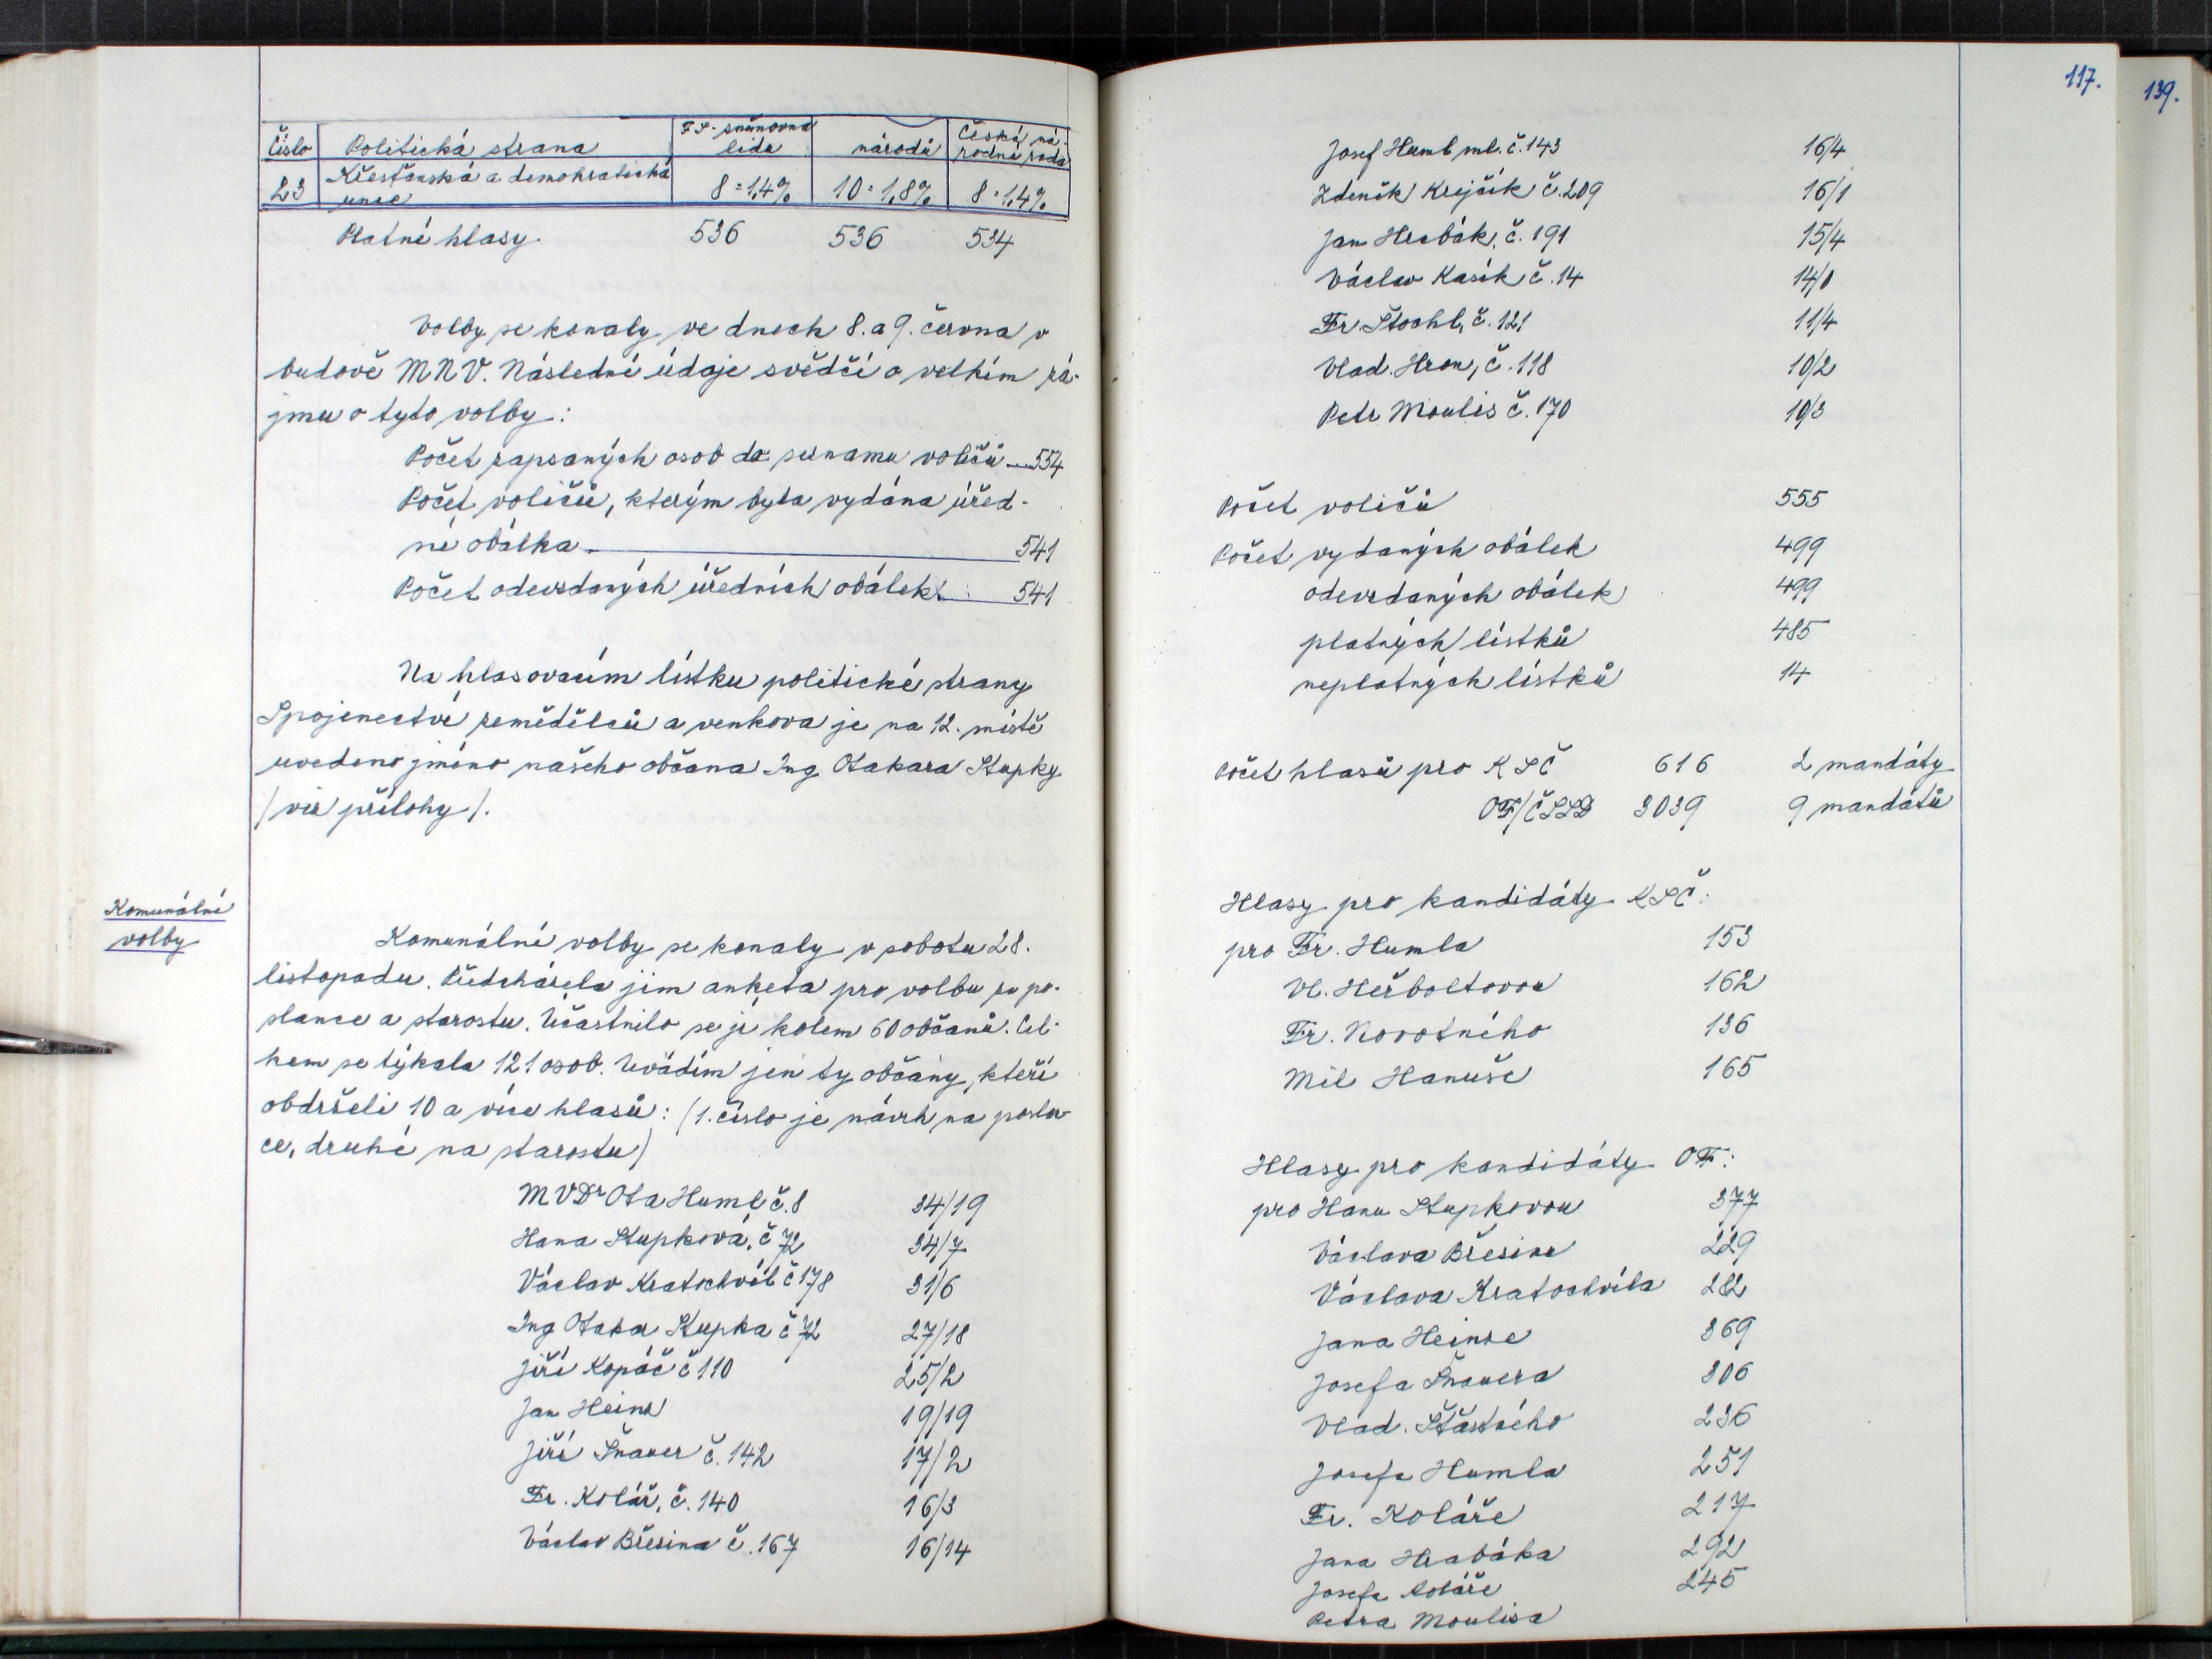 Číslo Politická strana F.S. sněmovna lidu národů Česká ná-rodní rada
23 Křesťanská a demokratická unie 8=1,4% 10=1,8% 8=1,4%
Platné hlasy 536 536 534
Volby se konaly ve dnech 8. a 9. června v
budově MNV. Následné údaje svědčí o velkém zá-
jmu o tyto volby:
Počet zapsaných osob do seznamu voličů 554
Počet voličů, kterým byla vydána úřed-
ní obálka 541
Počet odevzdaných úředních obálek 541
Na hlasovacím lístku politické strany
Spojenectví zemědělců a venkova je na 12. místě
uvedeno jméno našeho občana Ing. Otakara Stupky
/viz přílohy/.
Komunální
volby
Komunální volby se konaly v sobotu 28.
listopadu. Předcházela jim anketa pro volbu za po-
slance a starostu. Účastnilo se jí kolem 60 občanů. Cel-
kem se týkala 121 osob. Uvádím jen ty občany, kteří
obdrželi 10 a více hlasů: (1. číslo je návrh na poslan-
ce, druhé na starostu)
MVDr Ota Huml č. 8 34/19
Hana Stupková, č 72 34/7
Václav Kratochvíl č 178 31/6
Ing Otakar Stupka č 72 27/18
Jiří Kopáč č 110 25/2
Jan Heinz 19/19
Jiří Šnauer č. 142 17/2
Fr. Kolář, č. 140 16/3
Václav Březina č. 167 16/14
117.
139.
Josef Huml ml. č. 143 16/4
Zdeněk Krejčík č. 209 16/1
Jan Hrabák, č. 191 15/4
Václav Kasík č. 14 14/0
Fr. Štochl, č. 121 11/4
Vlad. Hron, č. 118 10/2
Petr Moulis č. 170 10/3
Počet voličů 555
Počet vydaných obálek 499
odevzdaných obálek 499
platných lístků 485
neplatných lístků 14
Počet hlasů pro KSČ 616 2 mandáty
OF/ČSSD 3039 9 mandátů
Hlasy pro kandidáty KSČ:
pro Fr. Humla 153
Vl. Heřboltovou 162
Fr. Novotného 136
Mil Hanuše 165
Hlasy pro kandidáty OF:
pro Hanu Stupkovou 377
Václava Březinu 229
Václava Kratochvíla 282
Jana Heinze 369
Josefa Šnauera 306
Vlad. Šťastného 236
Josefa Humla 251
Fr. Koláře 217
Jana Hrabáka 292
Josefa Koláře 245
Petra Moulisa